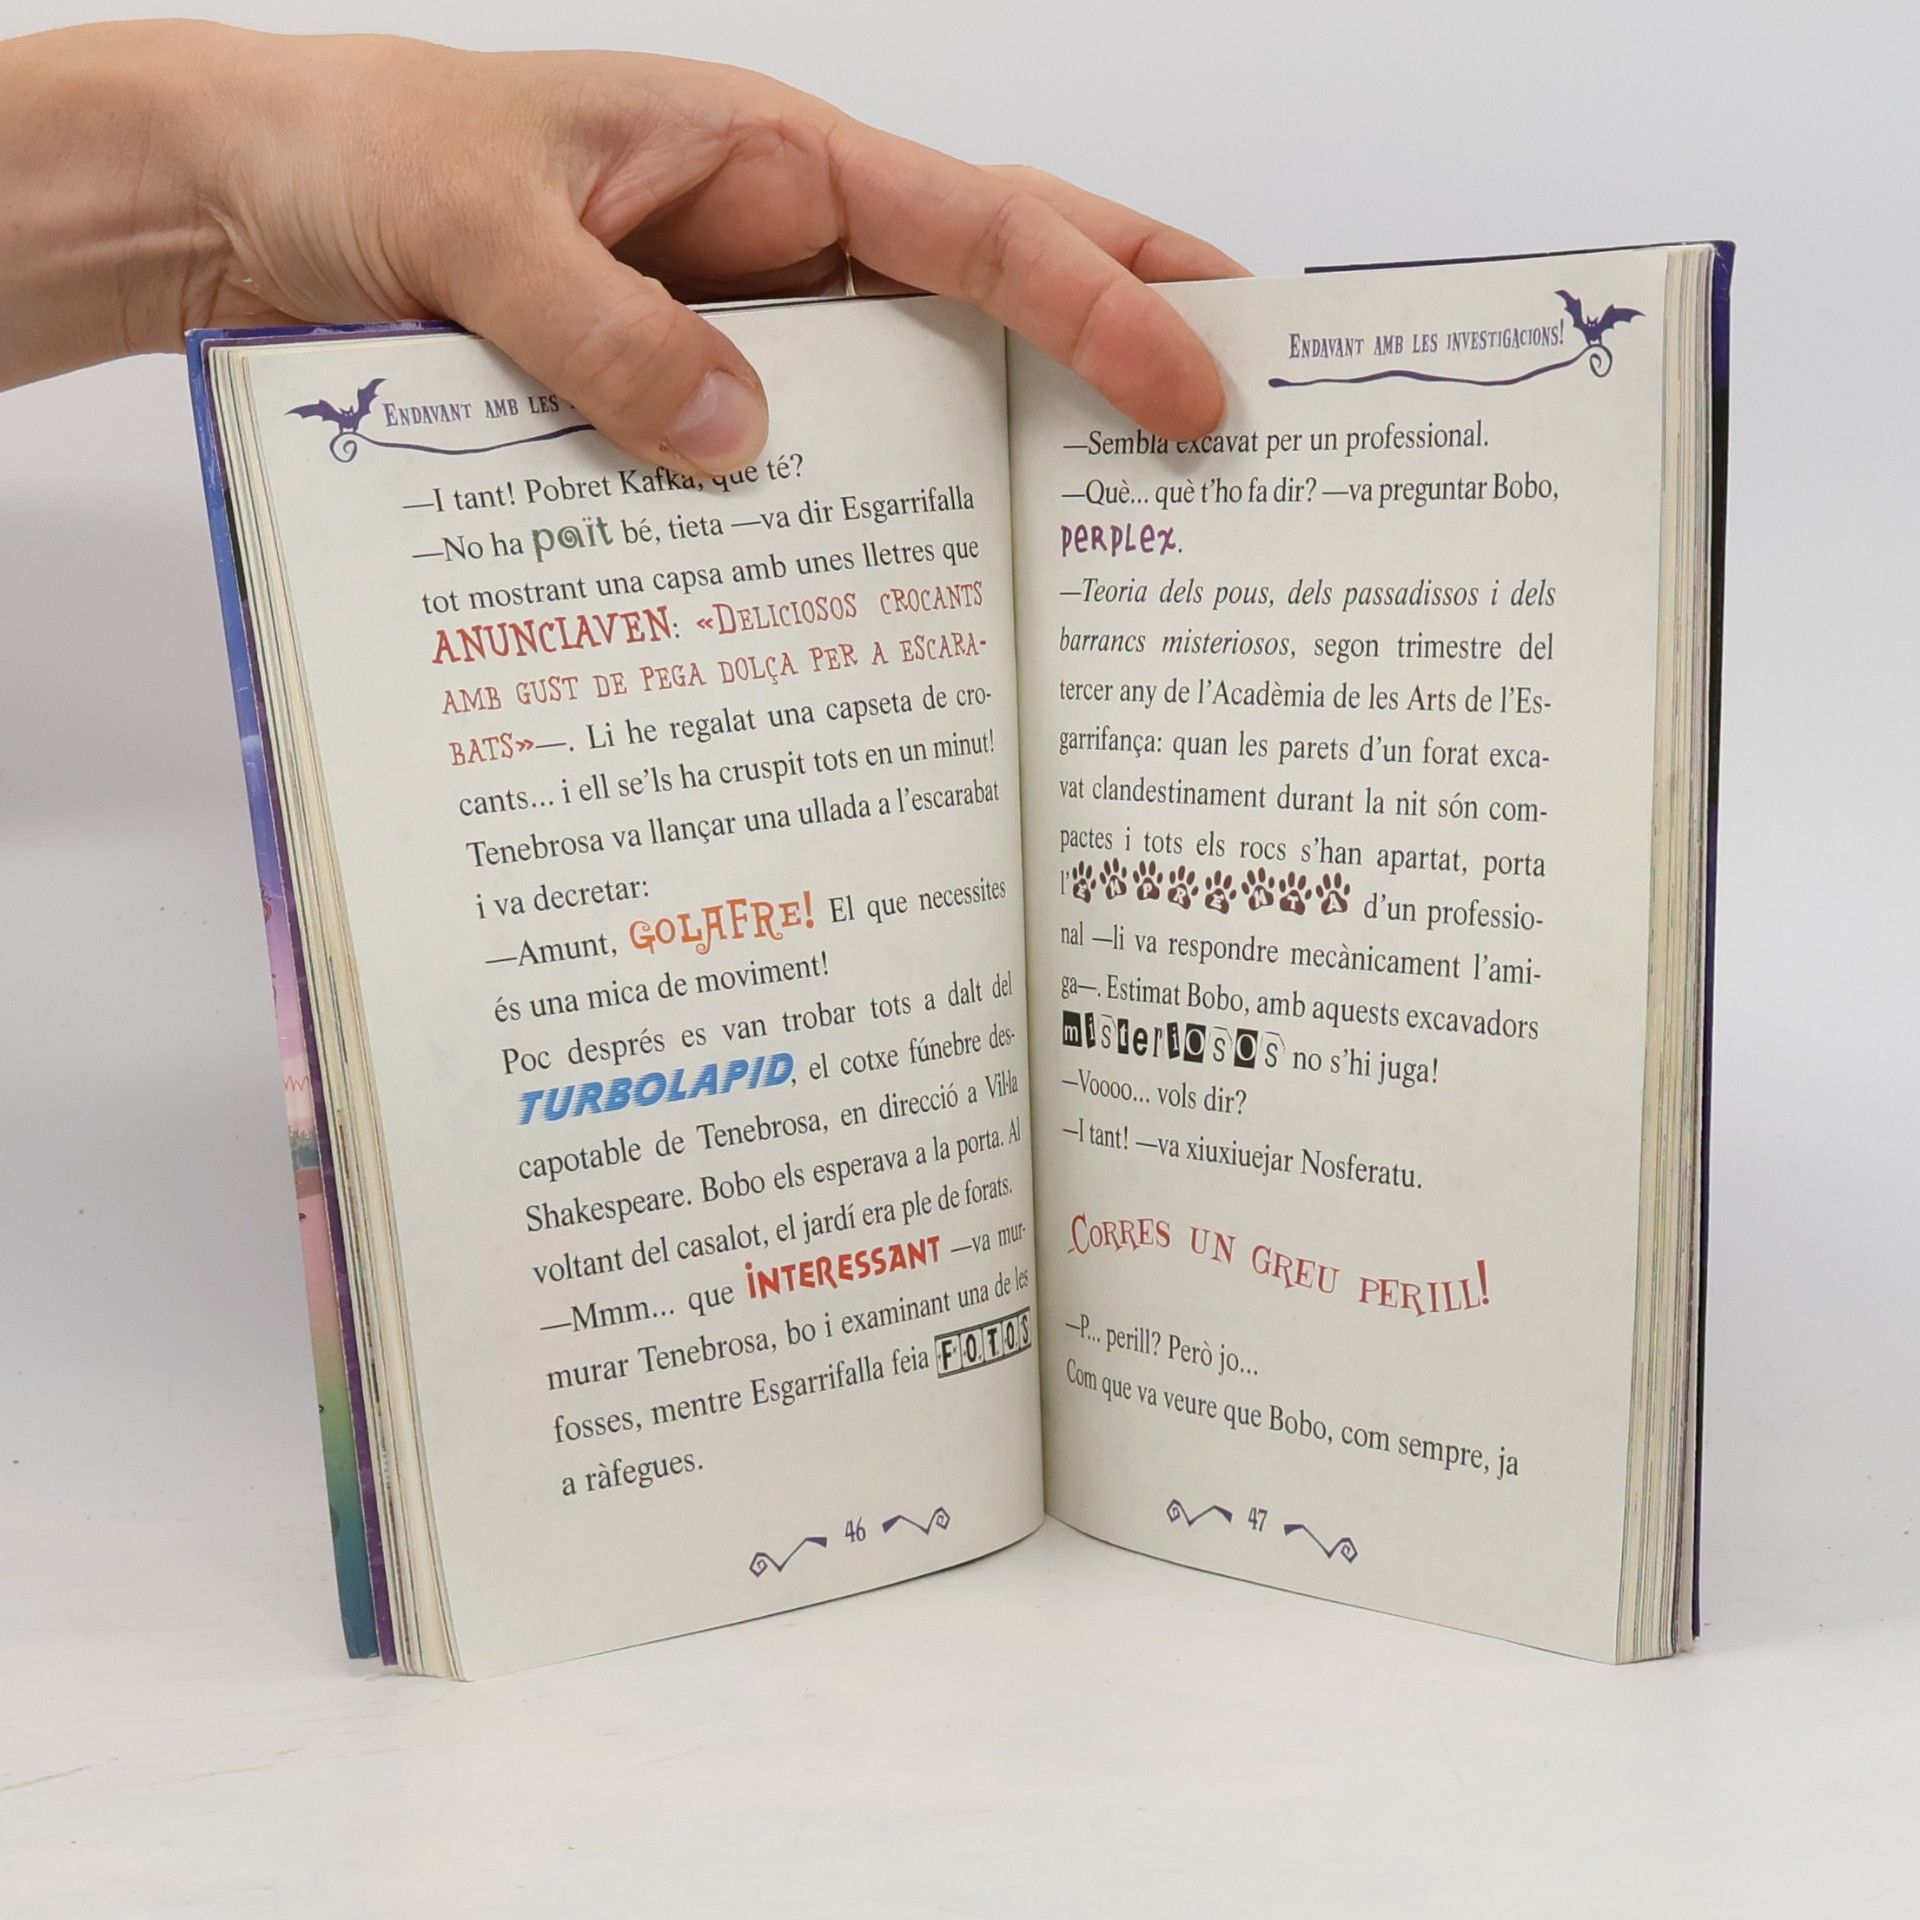 ENDAVANT AMB LES
—I tant! Pobret Kafka, que té?
—No ha paït bé, tieta —va dir Esgarrifalla
tot mostrant una capsa amb unes lletres que
ANUNCIAVEN: «DELICIOSOS CROCANTS
AMB GUST DE PEGA DOLÇA PER A ESCARA-
BATS»—. Li he regalat una capseta de cro-
cants... i ell se’ls ha cruspit tots en un minut!
Tenebrosa va llançar una ullada a l’escarabat
i va decretar:
—Amunt, GOLAFRE! El que necessites
és una mica de moviment!
Poc després es van trobar tots a dalt del
TURBOLAPID, el cotxe fúnebre des-
capotable de Tenebrosa, en direcció a Vil·la
Shakespeare. Bobo els esperava a la porta. Al
voltant del casalot, el jardí era ple de forats.
—Mmm... que INTERESSANT —va mur-
murar Tenebrosa, bo i examinant una de les
fosses, mentre Esgarrifalla feia FOTOS
a ràfegues.
46
ENDAVANT AMB LES INVESTIGACIONS!
—Sembla excavat per un professional.
—Què... què t’ho fa dir? —va preguntar Bobo,
PERPLEX.
—Teoria dels pous, dels passadissos i dels
barrancs misteriosos, segon trimestre del
tercer any de l’Acadèmia de les Arts de l’Es-
garrifança: quan les parets d’un forat exca-
vat clandestinament durant la nit són com-
pactes i tots els rocs s’han apartat, porta
l’EMPREMTA d’un professio-
nal —li va respondre mecànicament l’ami-
ga—. Estimat Bobo, amb aquests excavadors
misteriosos no s’hi juga!
—Voooo... vols dir?
—I tant! —va xiuxiuejar Nosferatu.
CORRES UN GREU PERILL!
—P... perill? Però jo...
Com que va veure que Bobo, com sempre, ja
47